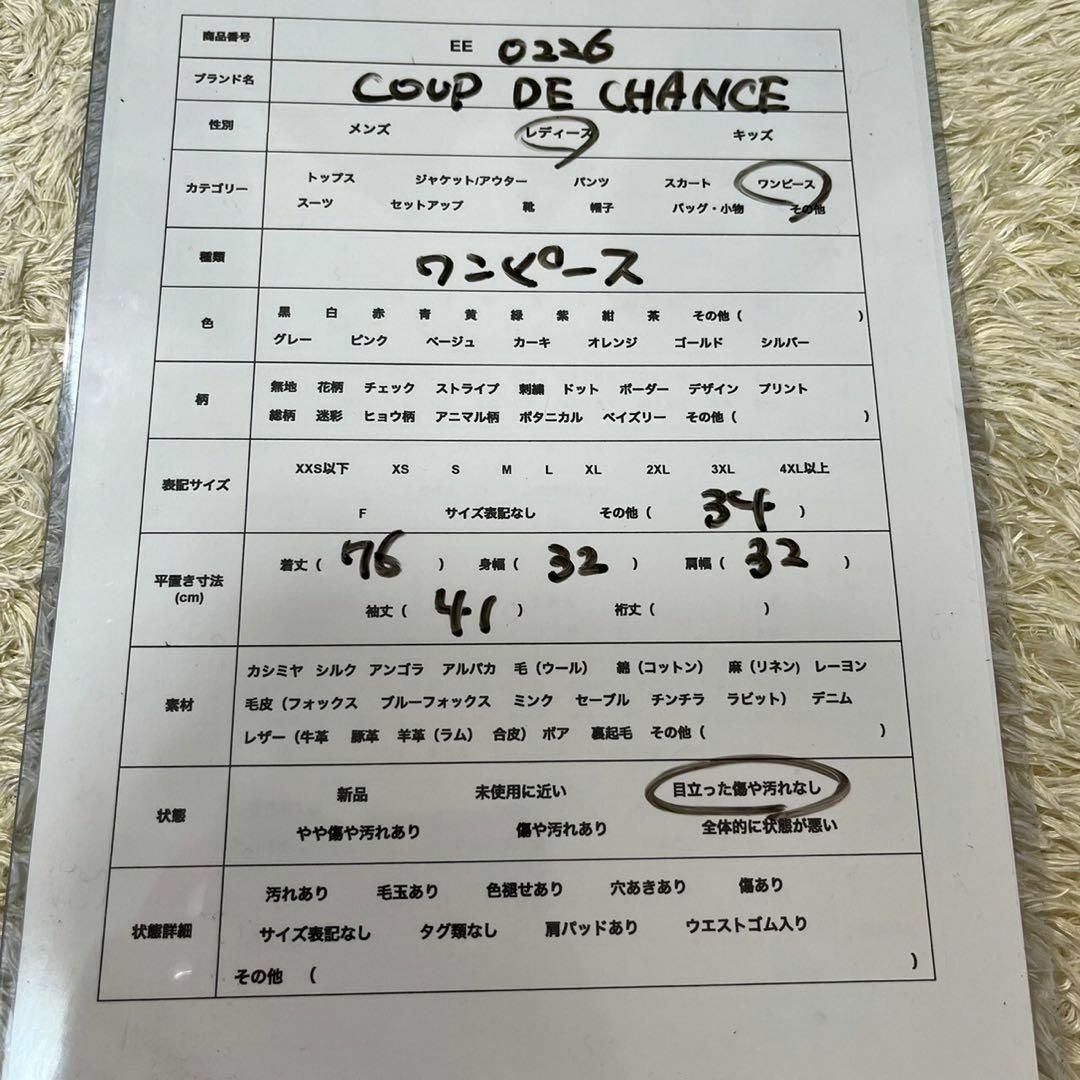 商品番号 EE 0226
ブランド名 COUP DE CHANCE
性別 メンズ レディース キッズ
カテゴリー トップス ジャケット/アウター パンツ スカート ワンピース
スーツ セットアップ 靴 帽子 バッグ・小物 その他
種類 ワンピース
色 黒 白 赤 青 黄 緑 紫 紺 茶 その他（ ）
グレー ピンク ベージュ カーキ オレンジ ゴールド シルバー
柄 無地 花柄 チェック ストライプ 刺繍 ドット ボーダー デザイン プリント
総柄 迷彩 ヒョウ柄 アニマル柄 ボタニカル ペイズリー その他（ ）
表記サイズ XXS以下 XS S M L XL 2XL 3XL 4XL以上
F サイズ表記なし その他（ 34 ）
平置き寸法 着丈（ 76 ） 身幅（ 32 ） 肩幅（ 32 ）
(cm) 袖丈（ 41 ） 裄丈（ ）
素材 カシミヤ シルク アンゴラ アルパカ 毛（ウール） 綿（コットン） 麻（リネン） レーヨン
毛皮（フォックス ブルーフォックス ミンク セーブル チンチラ ラビット） デニム
レザー（牛革 豚革 羊革（ラム） 合皮） ボア 裏起毛 その他（ ）
状態 新品 未使用に近い 目立った傷や汚れなし
やや傷や汚れあり 傷や汚れあり 全体的に状態が悪い
状態詳細 汚れあり 毛玉あり 色褪せあり 穴あきあり 傷あり
サイズ表記なし タグ類なし 肩パッドあり ウエストゴム入り
その他 （ ）